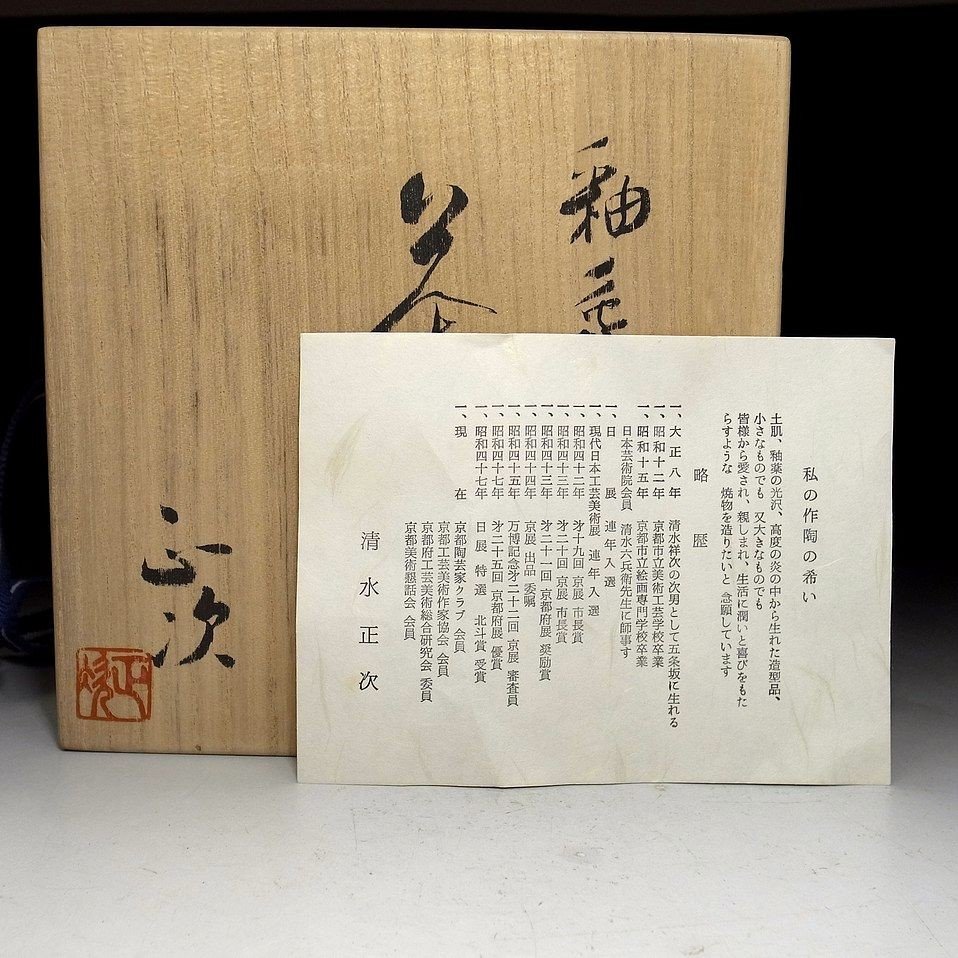 釉
茶
正次
正次
私の作陶の希い
土肌、釉薬の光沢、高度の炎の中から生れた造型品、
小さなものでも 又大きなものでも
皆様から愛され、親しまれ、生活に潤いと喜びをもた
らすような 焼物を造りたいと 念願しています
略歴
一、大正八年 清水祥次の次男として五条坂に生れる
一、昭和十二年 京都市立美術工芸学校卒業
一、昭和十五年 京都市立絵画専門学校卒業
日本芸術院会員 清水六兵衛先生に師事す
一、日展 連年入選
一、現代日本工芸美術展 連年入選
一、昭和四十二年 才十九回 京展 市長賞
一、昭和四十三年 才二十回 京展 市長賞
一、昭和四十三年 才二十一回 京都府展 奨励賞
一、昭和四十四年 京展 出品 委嘱
一、昭和四十五年 万博記念才二十二回 京展 審査員
一、昭和四十七年 才二十五回 京都府展 優賞
一、昭和四十七年 日展 特選 北斗賞 受賞
一、現在 京都陶芸家クラブ 会員
京都工芸美術作家協会 会員
京都府工芸美術総合研究会 委員
京都美術懇話会 会員
清水正次